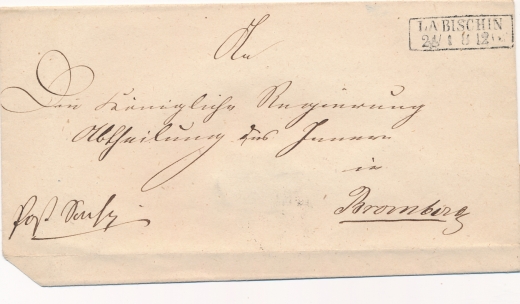 LABISCHIN
An
Die Königliche Regierung
Abtheilung des Innern
in
Bromberg